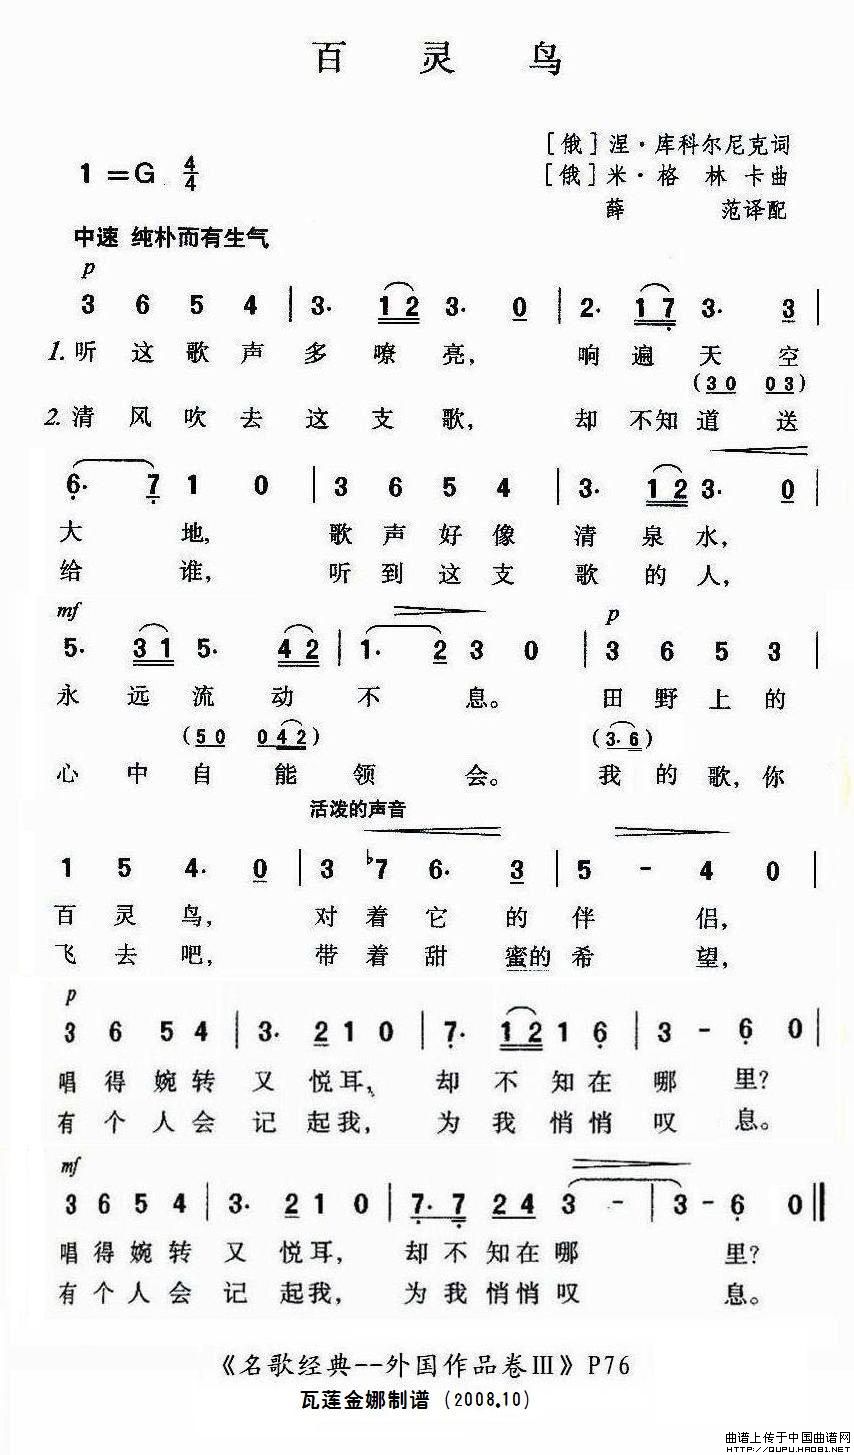 百灵鸟
[俄]涅·库科尔尼克词
1=G 4/4
[俄]米·格林卡曲
薛范译配
中速 纯朴而有生气
p
3 6 5 4 | 3· 1 2 3· 0 | 2· 1 7 3· 3 |
1. 听这歌声多嘹亮, 响遍天空
(3 0 0 3)
2. 清风吹去这支歌, 却不知道送
6· 7 1 0 | 3 6 5 4 3· 1 2 3· 0 |
大地, 歌声好像清泉水,
给谁, 听到这支歌的人,
mf p
5· 3 1 5· 4 2 | 1· 2 3 0 | 3 6 5 3 |
永远流动不息。 田野上的
(5 0 0 4 2) (3· 6)
心中自能领会。 我的歌,你
活泼的声音
1 5 4· 0 | 3 ♭7 6· 3 | 5 - 4 0 |
百灵鸟, 对着它的伴侣,
飞去吧, 带着甜蜜的希望,
p
3 6 5 4 | 3· 2 1 0 | 7· 1 2 1 6 | 3 - 6 0 |
唱得婉转又悦耳, 却不知在哪里?
有个人会记起我, 为我悄悄叹息。
mf
3 6 5 4 | 3· 2 1 0 | 7· 7 2 4 3 - | 3 - 6 0 ‖
唱得婉转又悦耳, 却不知在哪里?
有个人会记起我, 为我悄悄叹息。
《名歌经典--外国作品卷Ⅲ》P76
瓦莲金娜制谱 (2008.10)
曲谱上传于中国曲谱网
http://QUPU.HAO81.NET